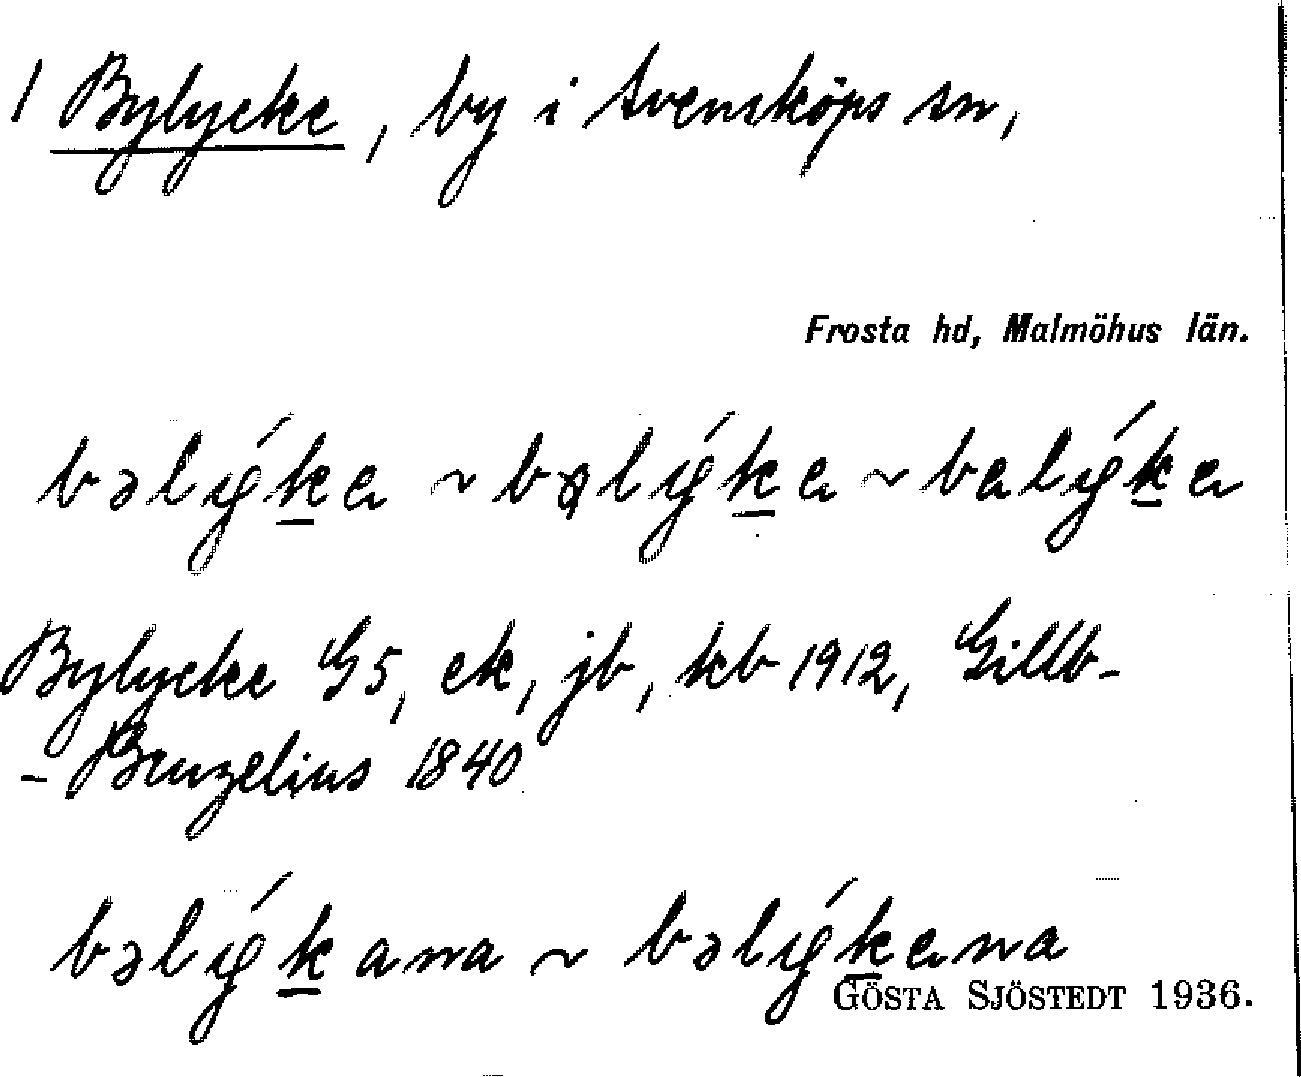 1 Bylycke, by i Svensköps sn,
Frosta hd, Malmöhus län.
bəlýka ~ bɑlýka ~ balýka
Bylycke G5, ek, jb, kb 1912, Gillb-
- Benzelius 1840
bəlýkana ~ bəlýkana
GÖSTA SJÖSTEDT 1936.